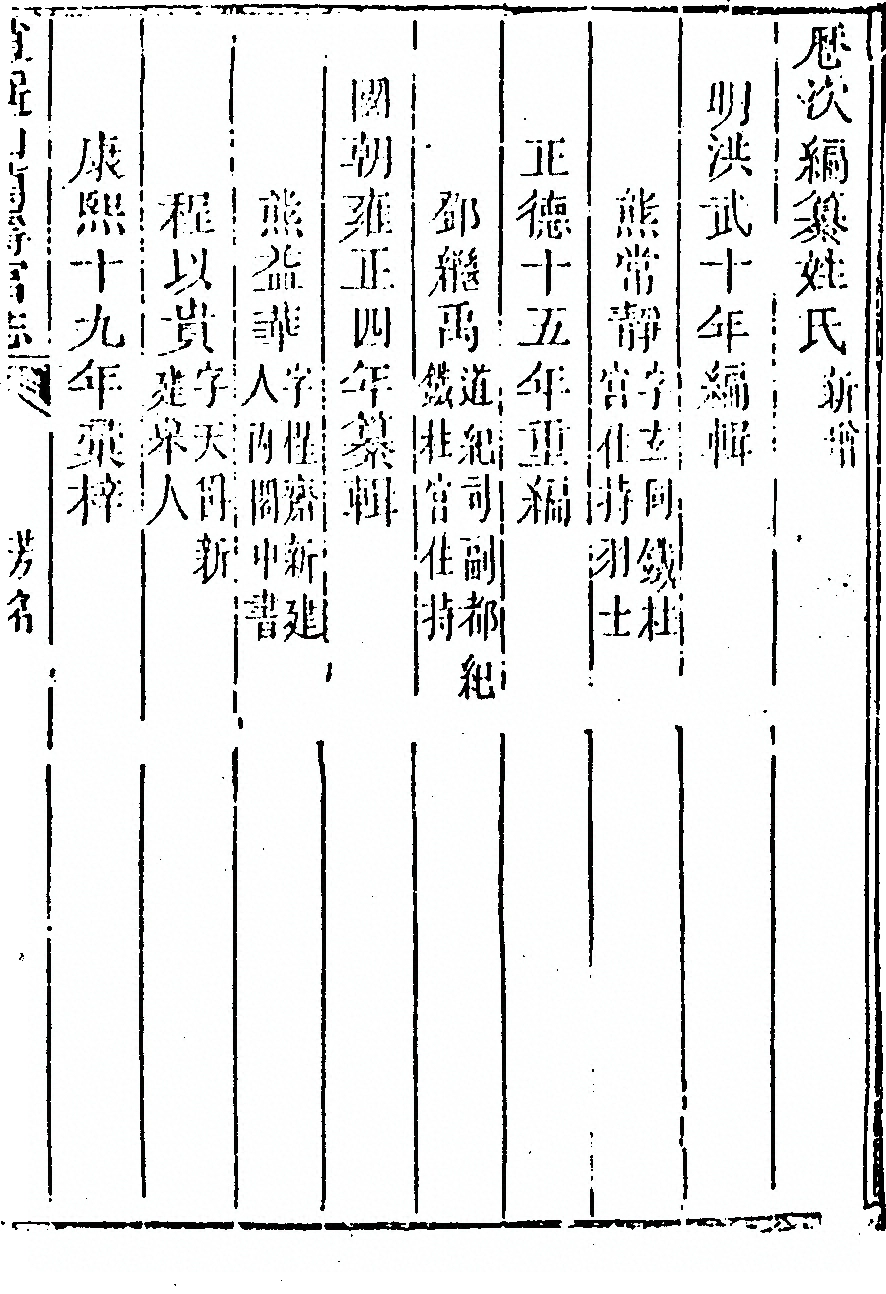 歷次編纂姓氏 新增
明洪武十年編輯
熊常靜 字玄同鐵柱
宮住持羽士
正德十五年重編
鄧繼禹 道紀司副都紀
鐵柱宮住持
國朝雍正四年纂輯
熊益華 字惺齋新建
人內閣中書
程以貴 字天爵新
建泉人
康熙十九年栞梓
逍遙山萬壽宮志
芳名